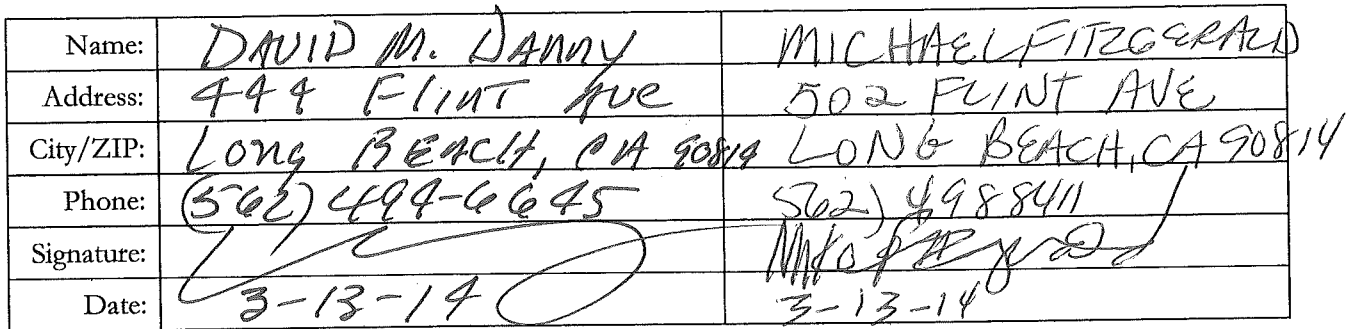 Name: DAVID M. DANNY MICHAEL FITZGERALD
Address: 444 Flint Ave 502 FLINT AVE
City/ZIP: Long BEACH, CA 90814 LONG BEACH, CA 90814
Phone: (562) 494-6645 562) 4988411
Signature:
Date: 3-13-14 3-13-14